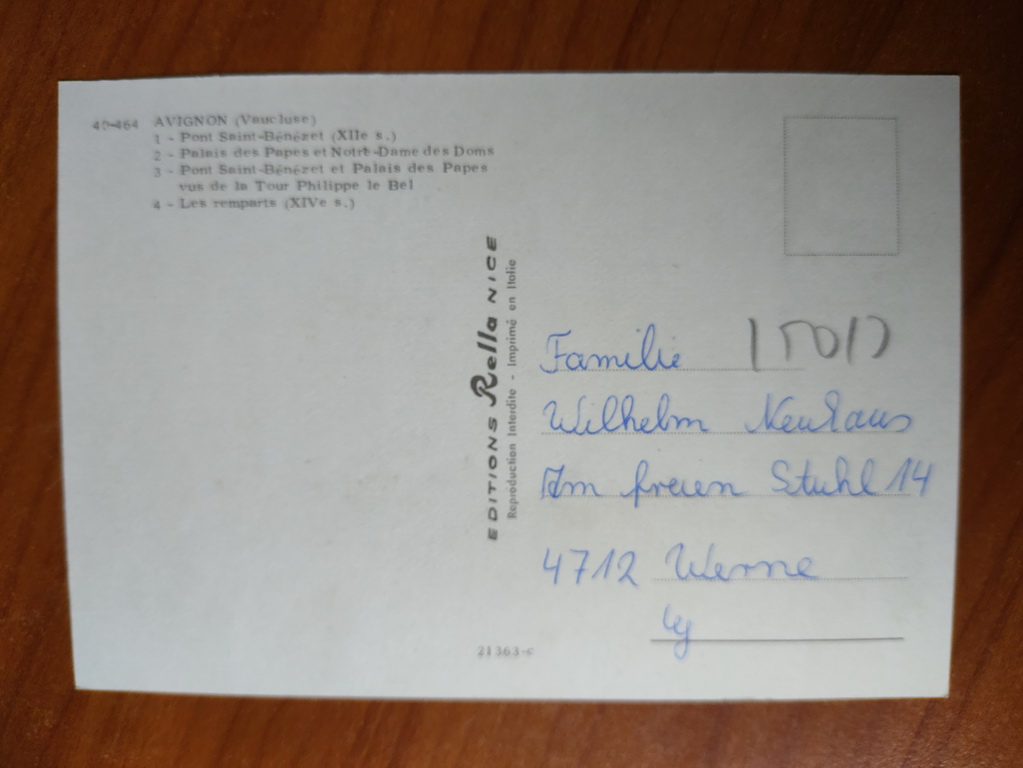 40-464 AVIGNON (Vaucluse)
1 - Pont Saint-Bénézet (XIIe s.)
2 - Palais des Papes et Notre-Dame des Doms
3 - Pont Saint-Bénézet et Palais des Papes
vus de la Tour Philippe le Bel
4 - Les remparts (XIVe s.)
EDITIONS Rella NICE
Reproduction Interdite - Imprimé en Italie
Familie
Wilhelm Neuhaus
Am freien Stuhl 14
4712 Werne
21363-c